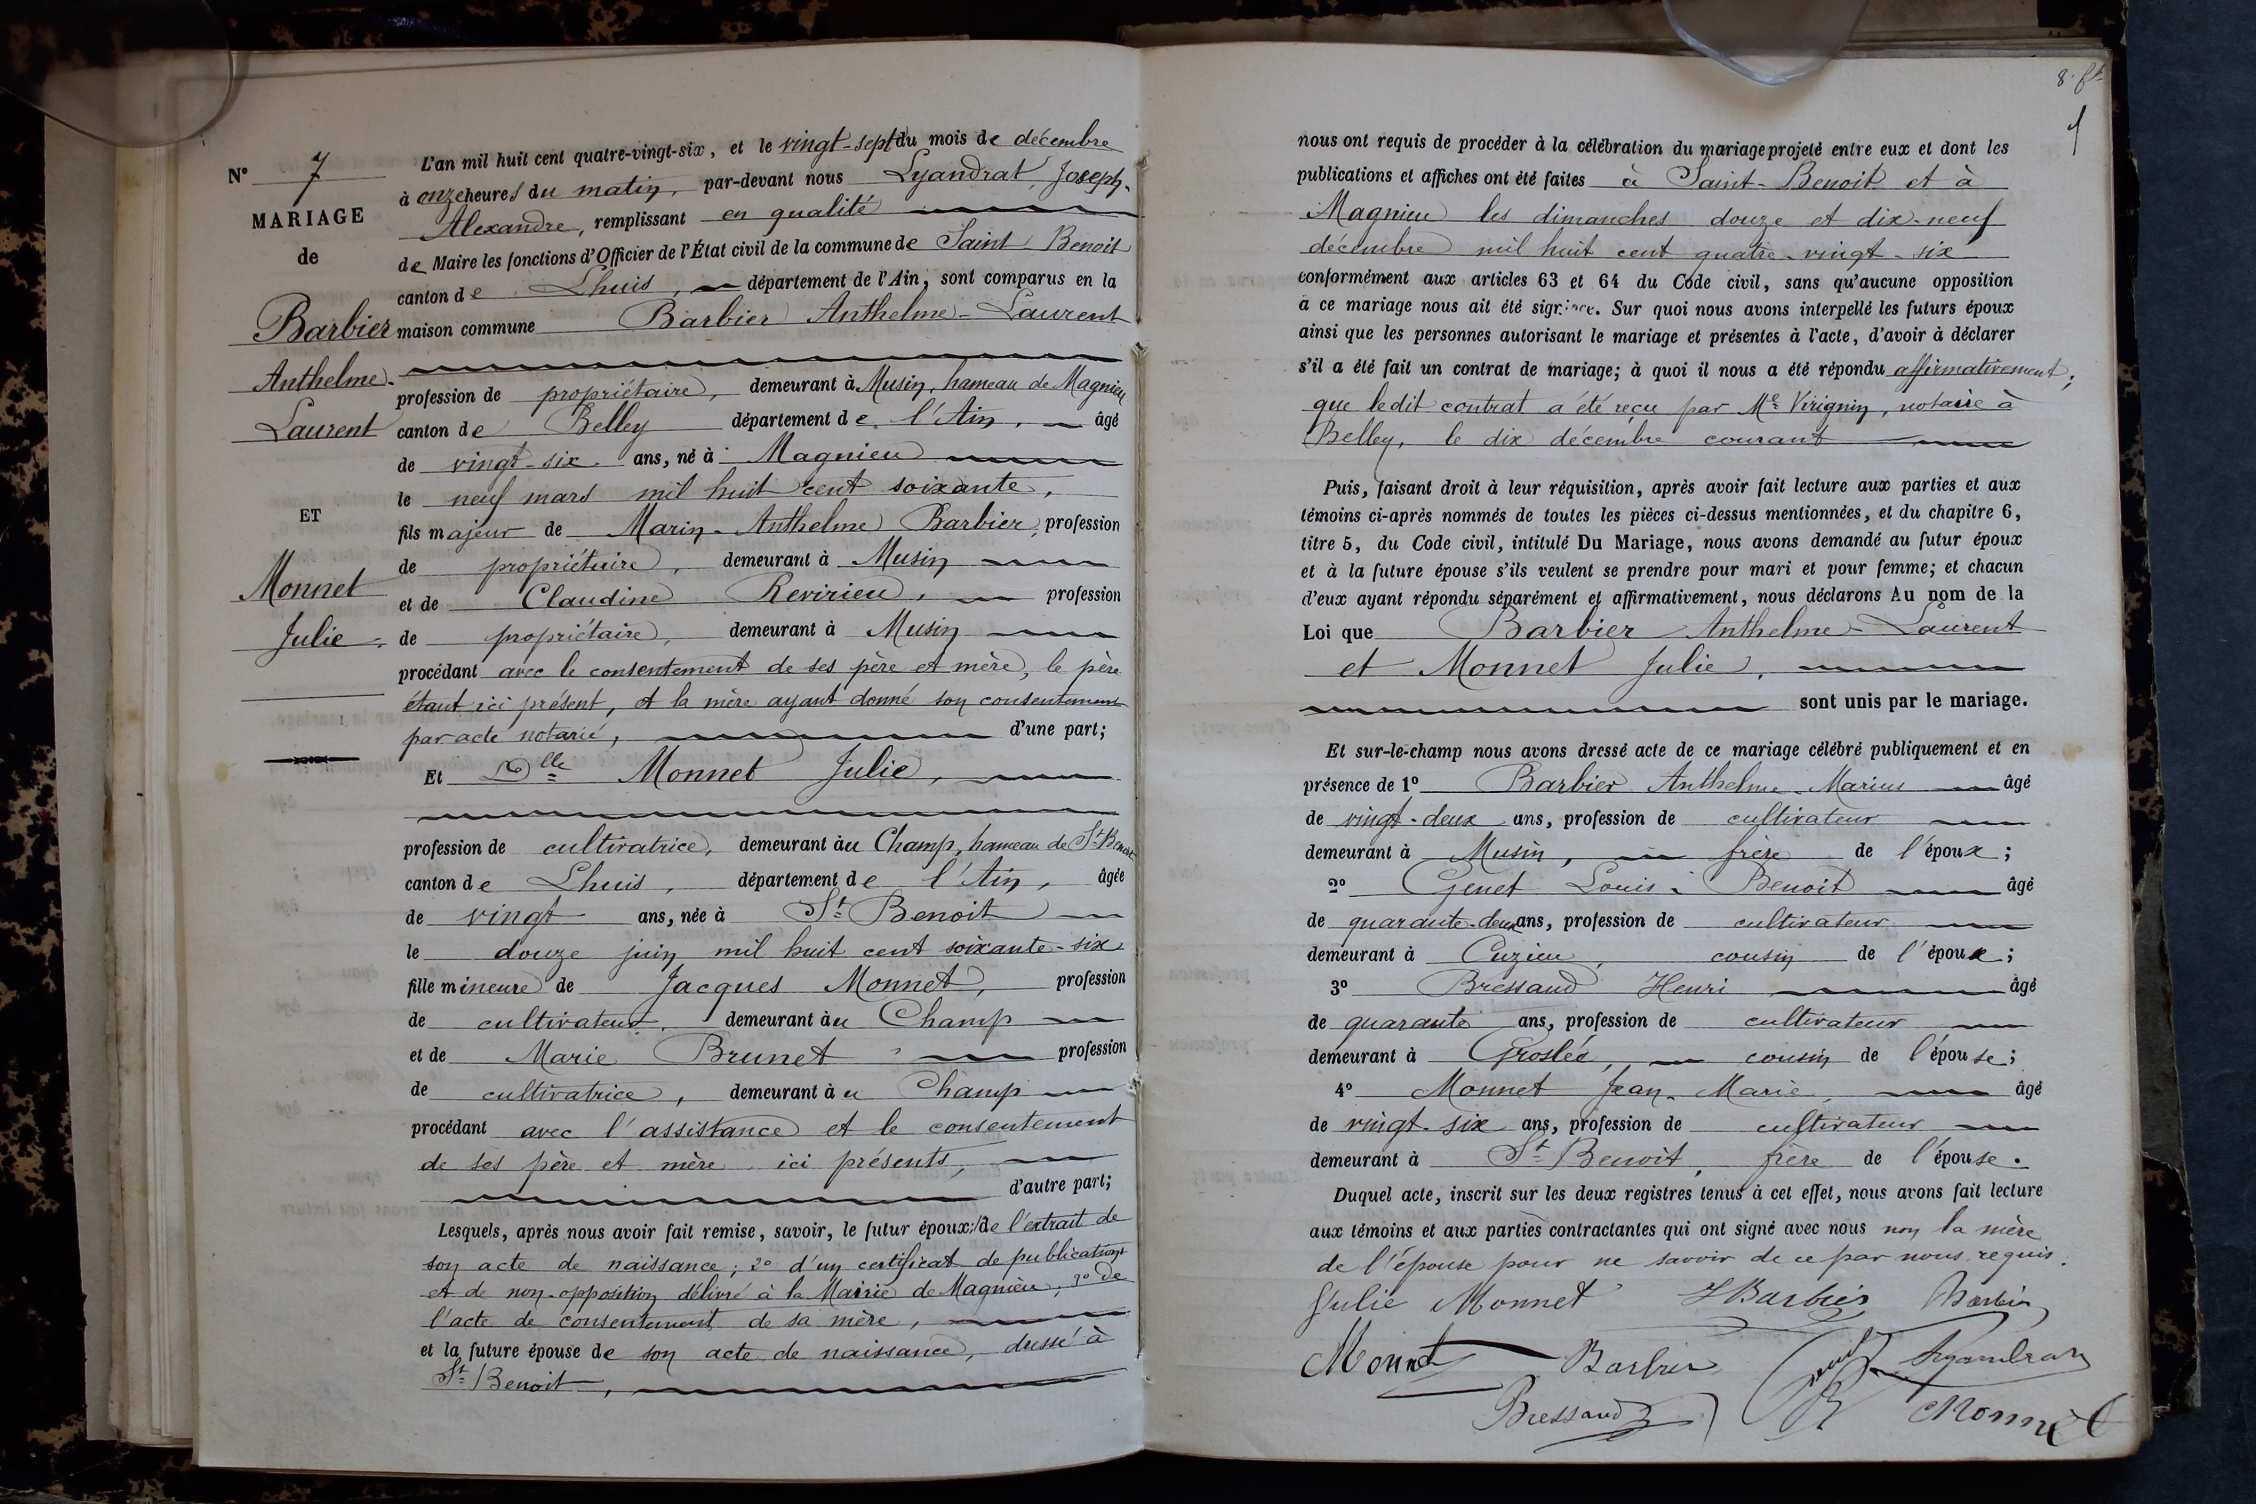 N° 7
MARIAGE
de
Barbier
Anthelme-
Laurent
ET
Monnet
Julie.
L'an mil huit cent quatre-vingt-six, et le vingt-sept du mois de décembre
à onze heures du matin, par-devant nous Lyandrat, Joseph-
Alexandre, remplissant en qualité
de Maire les fonctions d'Officier de l'État civil de la commune de Saint-Benoit
canton de Lhuis, département de l'Ain, sont comparus en la
maison commune Barbier Anthelme-Laurent
profession de propriétaire, demeurant à Musin, hameau de Magnieu
canton de Belley département de l'Ain, âgé
de vingt-six ans, né à Magnieu
le neuf mars mil huit cent soixante,
fils majeur de Marin-Anthelme Barbier, profession
de propriétaire, demeurant à Musin
et de Claudine Revirieu, profession
de propriétaire, demeurant à Musin
procédant avec le consentement de ses père et mère, le père
étant ici présent, et la mère ayant donné son consentement
par acte notarié, d'une part;
Et Dlle Monnet Julie,
profession de cultivatrice, demeurant àu Champ, hameau de St Benoit
canton de Lhuis, département de l'Ain, âgée
de vingt ans, née à St Benoit
le douze juin mil huit cent soixante-six
fille mineure de Jacques Monnet, profession
de cultivateur, demeurant àu Champ
et de Marie Brunet profession
de cultivatrice, demeurant àu Champ
procédant avec l'assistance et le consentement
de ses père et mère ici présents,
d'autre part;
Lesquels, après nous avoir fait remise, savoir, le futur époux, 1° de l'extrait de
son acte de naissance; 2° d'un certificat de publications
et de non-opposition délivré à la Mairie de Magnieu, 3° de
l'acte de consentement de sa mère,
et la future épouse de son acte de naissance, dressé à
St Benoit,
8.
nous ont requis de procéder à la célébration du mariage projeté entre eux et dont les
publications et affiches ont été faites à Saint-Benoit et à
Magnieu les dimanches douze et dix-neuf
décembre mil huit cent quatre-vingt-six
conformément aux articles 63 et 64 du Code civil, sans qu'aucune opposition
à ce mariage nous ait été signifiée. Sur quoi nous avons interpellé les futurs époux
ainsi que les personnes autorisant le mariage et présentes à l'acte, d'avoir à déclarer
s'il a été fait un contrat de mariage; à quoi il nous a été répondu affirmativement;
que ledit contrat a été reçu par Me Virignin, notaire à
Belley, le dix décembre courant
Puis, faisant droit à leur réquisition, après avoir fait lecture aux parties et aux
témoins ci-après nommés de toutes les pièces ci-dessus mentionnées, et du chapitre 6,
titre 5, du Code civil, intitulé Du Mariage, nous avons demandé au futur époux
et à la future épouse s'ils veulent se prendre pour mari et pour femme; et chacun
d'eux ayant répondu séparément et affirmativement, nous déclarons Au nom de la
Loi que Barbier Anthelme-Laurent
et Monnet Julie,
sont unis par le mariage.
Et sur-le-champ nous avons dressé acte de ce mariage célébré publiquement et en
présence de 1° Barbier Anthelme-Marius âgé
de vingt-deux ans, profession de cultivateur
demeurant à Musin, frère de l'époux;
2° Genet Louis-Benoit âgé
de quarante-deux ans, profession de cultivateur
demeurant à Cuzieu, cousin de l'époux;
3° Bressaud Henri âgé
de quarante ans, profession de cultivateur
demeurant à Groslée, cousin de l'épouse;
4° Monnet Jean-Marie, âgé
de vingt-six ans, profession de cultivateur
demeurant à St Benoit, frère de l'épouse.
Duquel acte, inscrit sur les deux registres tenus à cet effet, nous avons fait lecture
aux témoins et aux parties contractantes qui ont signé avec nous non la mère
de l'épouse pour ne savoir de ce par nous requis.
Julie Monnet Barbier Barbier
Monnet Barbier Lyandrat
Bressaud Monnet